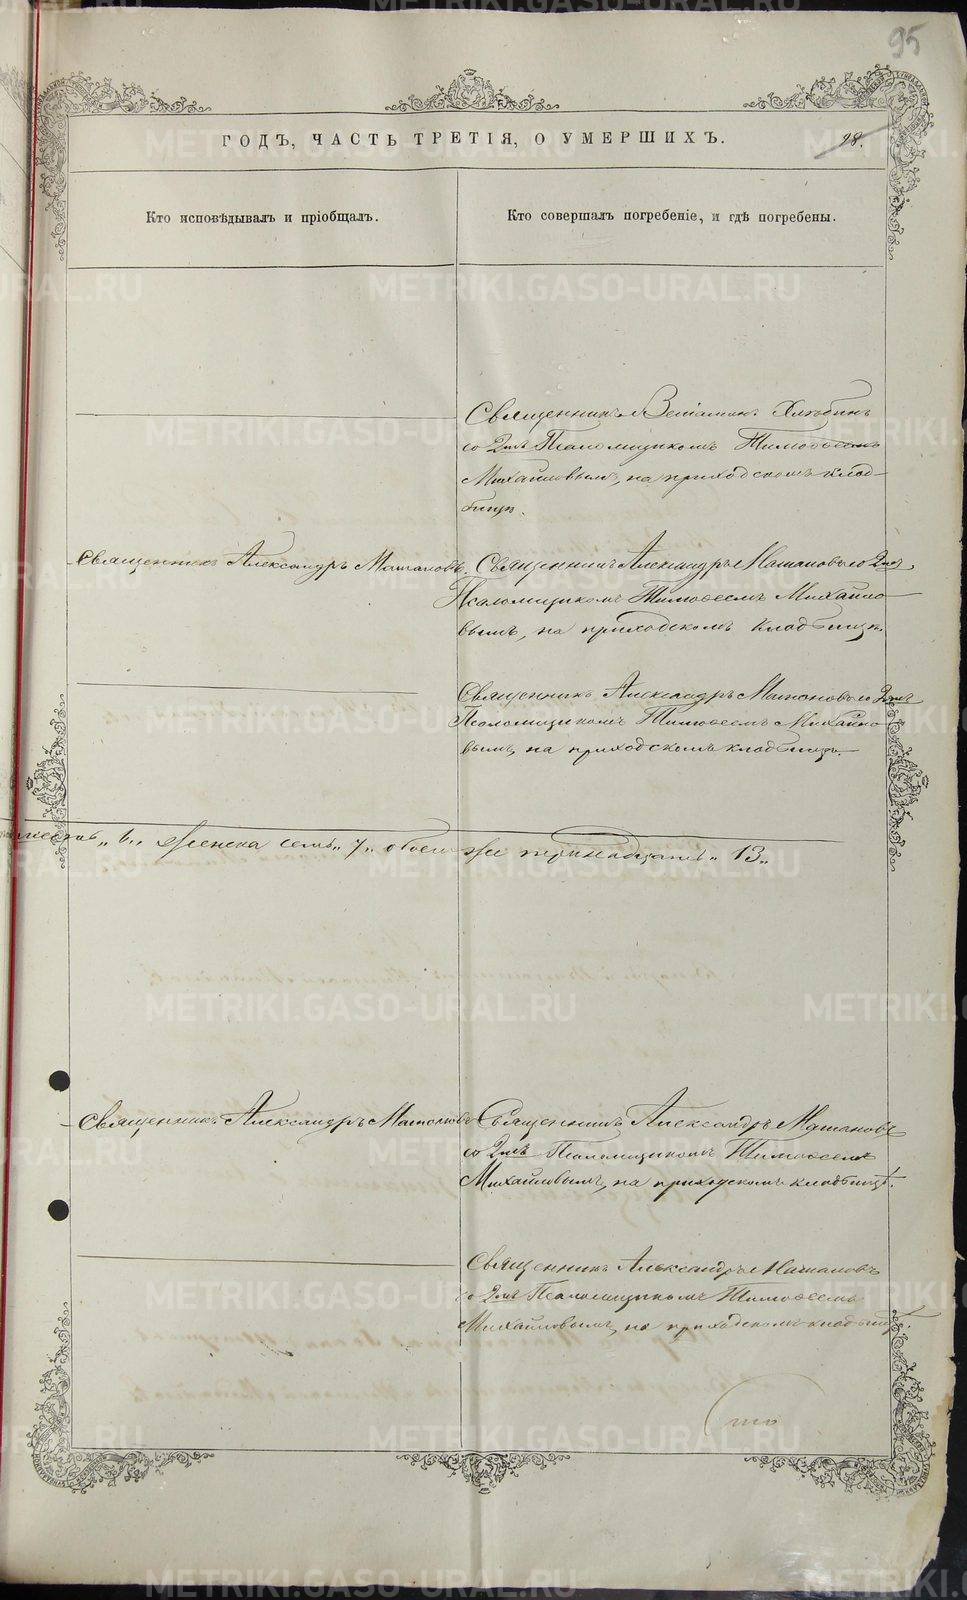 95
ГОДЪ, ЧАСТЬ ТРЕТІЯ, О УМЕРШИХЪ.
98.
Кто исповѣдывалъ и пріобщалъ.
Кто совершалъ погребеніе, и гдѣ погребены.
Священникъ Веніаминъ Хлѣбинъ
со 2мъ Псаломщикомъ Тимоѳеемъ
Михайловымъ, на приходскомъ клад-
бищѣ.
Священникъ Александръ Матановъ.
Священникъ Александръ Матановъ со 2мъ
Псаломщикомъ Тимоѳеемъ Михайло-
вымъ, на приходскомъ кладбищѣ.
Священникъ Александръ Матановъ со 2мъ
Псаломщикомъ Тимоѳеемъ Михайло-
вымъ, на приходскомъ кладбищѣ.
шесть „6„ женска семь „7„ обоего же тринадцать „13„
Священникъ Александръ Матановъ
Священникъ Александръ Матановъ
со 2мъ Псаломщикомъ Тимоѳеемъ
Михайловымъ, на приходскомъ кладбищѣ.
Священникъ Александръ Матановъ
со 2мъ Псаломщикомъ Тимоѳеемъ
Михайловымъ, на приходскомъ кладбищѣ.
METRIKI.GASO-URAL.RU